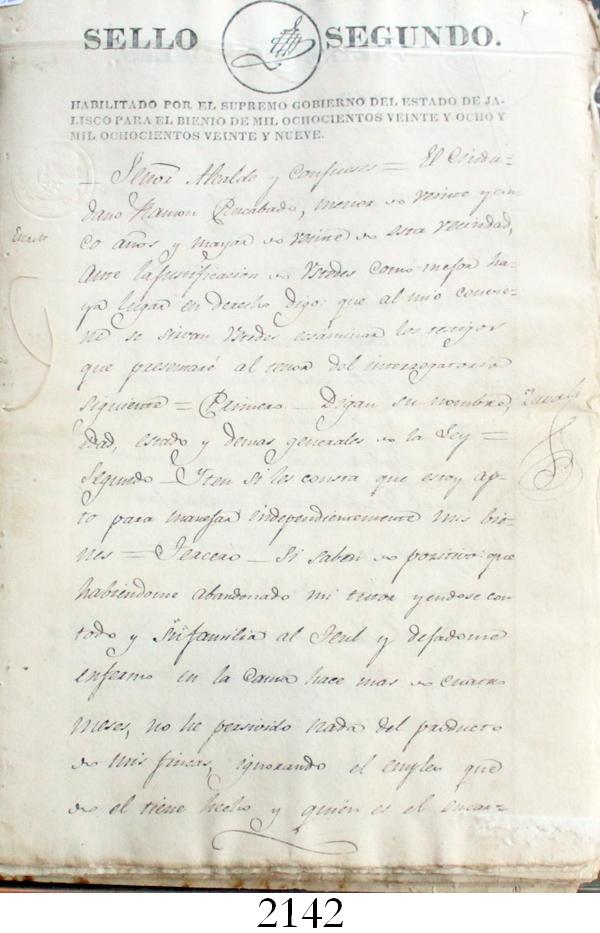 SELLO SEGUNDO.
HABILITADO POR EL SUPREMO GOBIERNO DEL ESTADO DE JA-
LISCO PARA EL BIENIO DE MIL OCHOCIENTOS VEINTE Y OCHO Y
MIL OCHOCIENTOS VEINTE Y NUEVE.
Señor Alcalde y Confueses = El Ciuda-
dano Ramon Rucabado, menor de veinte y cin-
Escrito
co años y mayor de veinte de esta vecindad,
Ante la Justificacion de Vstedes como mejor ha-
ya lugar en derecho digo: que al mio convie-
ne se sirvan Vstedes ecsaminar los testigos
que presentaré al tenor del interrogatorio
siguiente = Primero Digan su nombre,
edad, estado y demas generales de la Ley =
Segundo Yten si les consta que estoy ap-
to para manejar independientemente mis bie-
nes = Tercero Si saben de pozitivo que
habiendome abandonado mi tutor yendose con
todo y su familia al Teul y dejadome
enfermo en la Cama hace mas de cuatro
meses, no he persivido nada del producto
de mis fincas, ignorando el empleo que
de el tiene hecho y quien es el encar-
2142